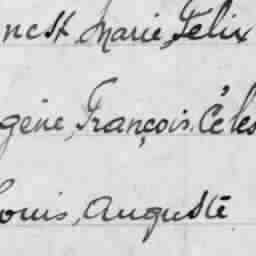 nest, Marie, Félix
gène, François, Céles
ouis, Auguste